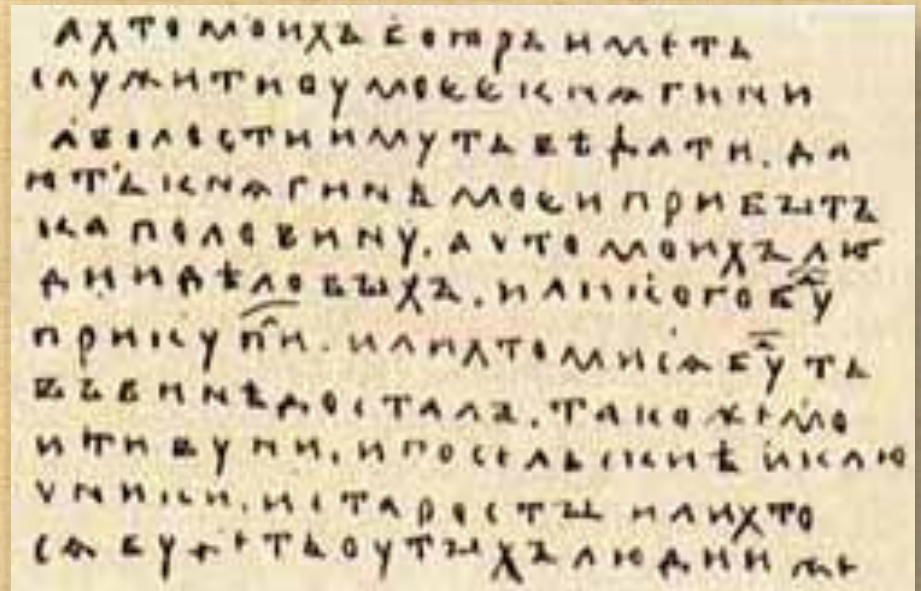 а хто моихъ боꙗръ иметь
служити оу моее кнѧгини
а волости имуть вѣдати. да
ють кнѧгинѣ моеи прибꙑтъ
ка половину. а что моихъ лю
дии дѣловꙑхъ. или кого буⷣ
прикупиⷧ. или хто ми сѧ буⷣть
въ винѣ досталъ. тако же мо
и тивуни. и посельскиѣ и клю
чники. и старостꙑ или хто
сѧ будеть оу тꙑхъ людии же